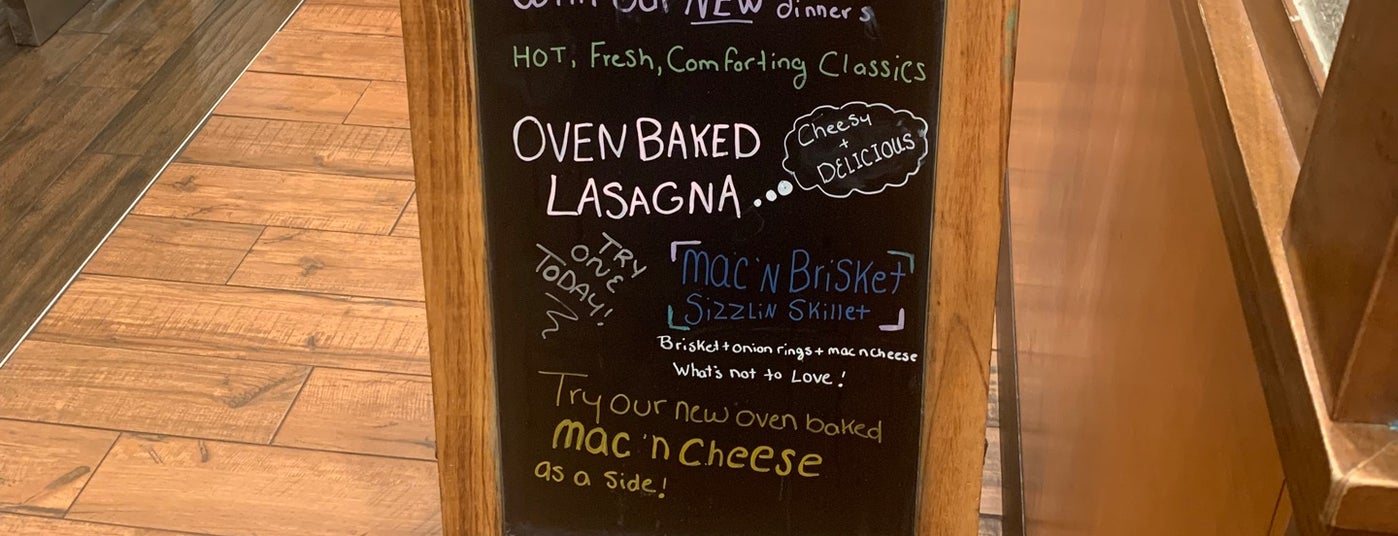 with our NEW dinners
HOT, Fresh, Comforting Classics
OVEN BAKED
LASAGNA
Cheesy
+
DELICIOUS
TRY
ONE
TODAY!
mac 'N Brisket
Sizzlin Skillet
Brisket + onion rings + mac n cheese
What's not to Love!
Try our new oven baked
mac 'n cheese
as a side!